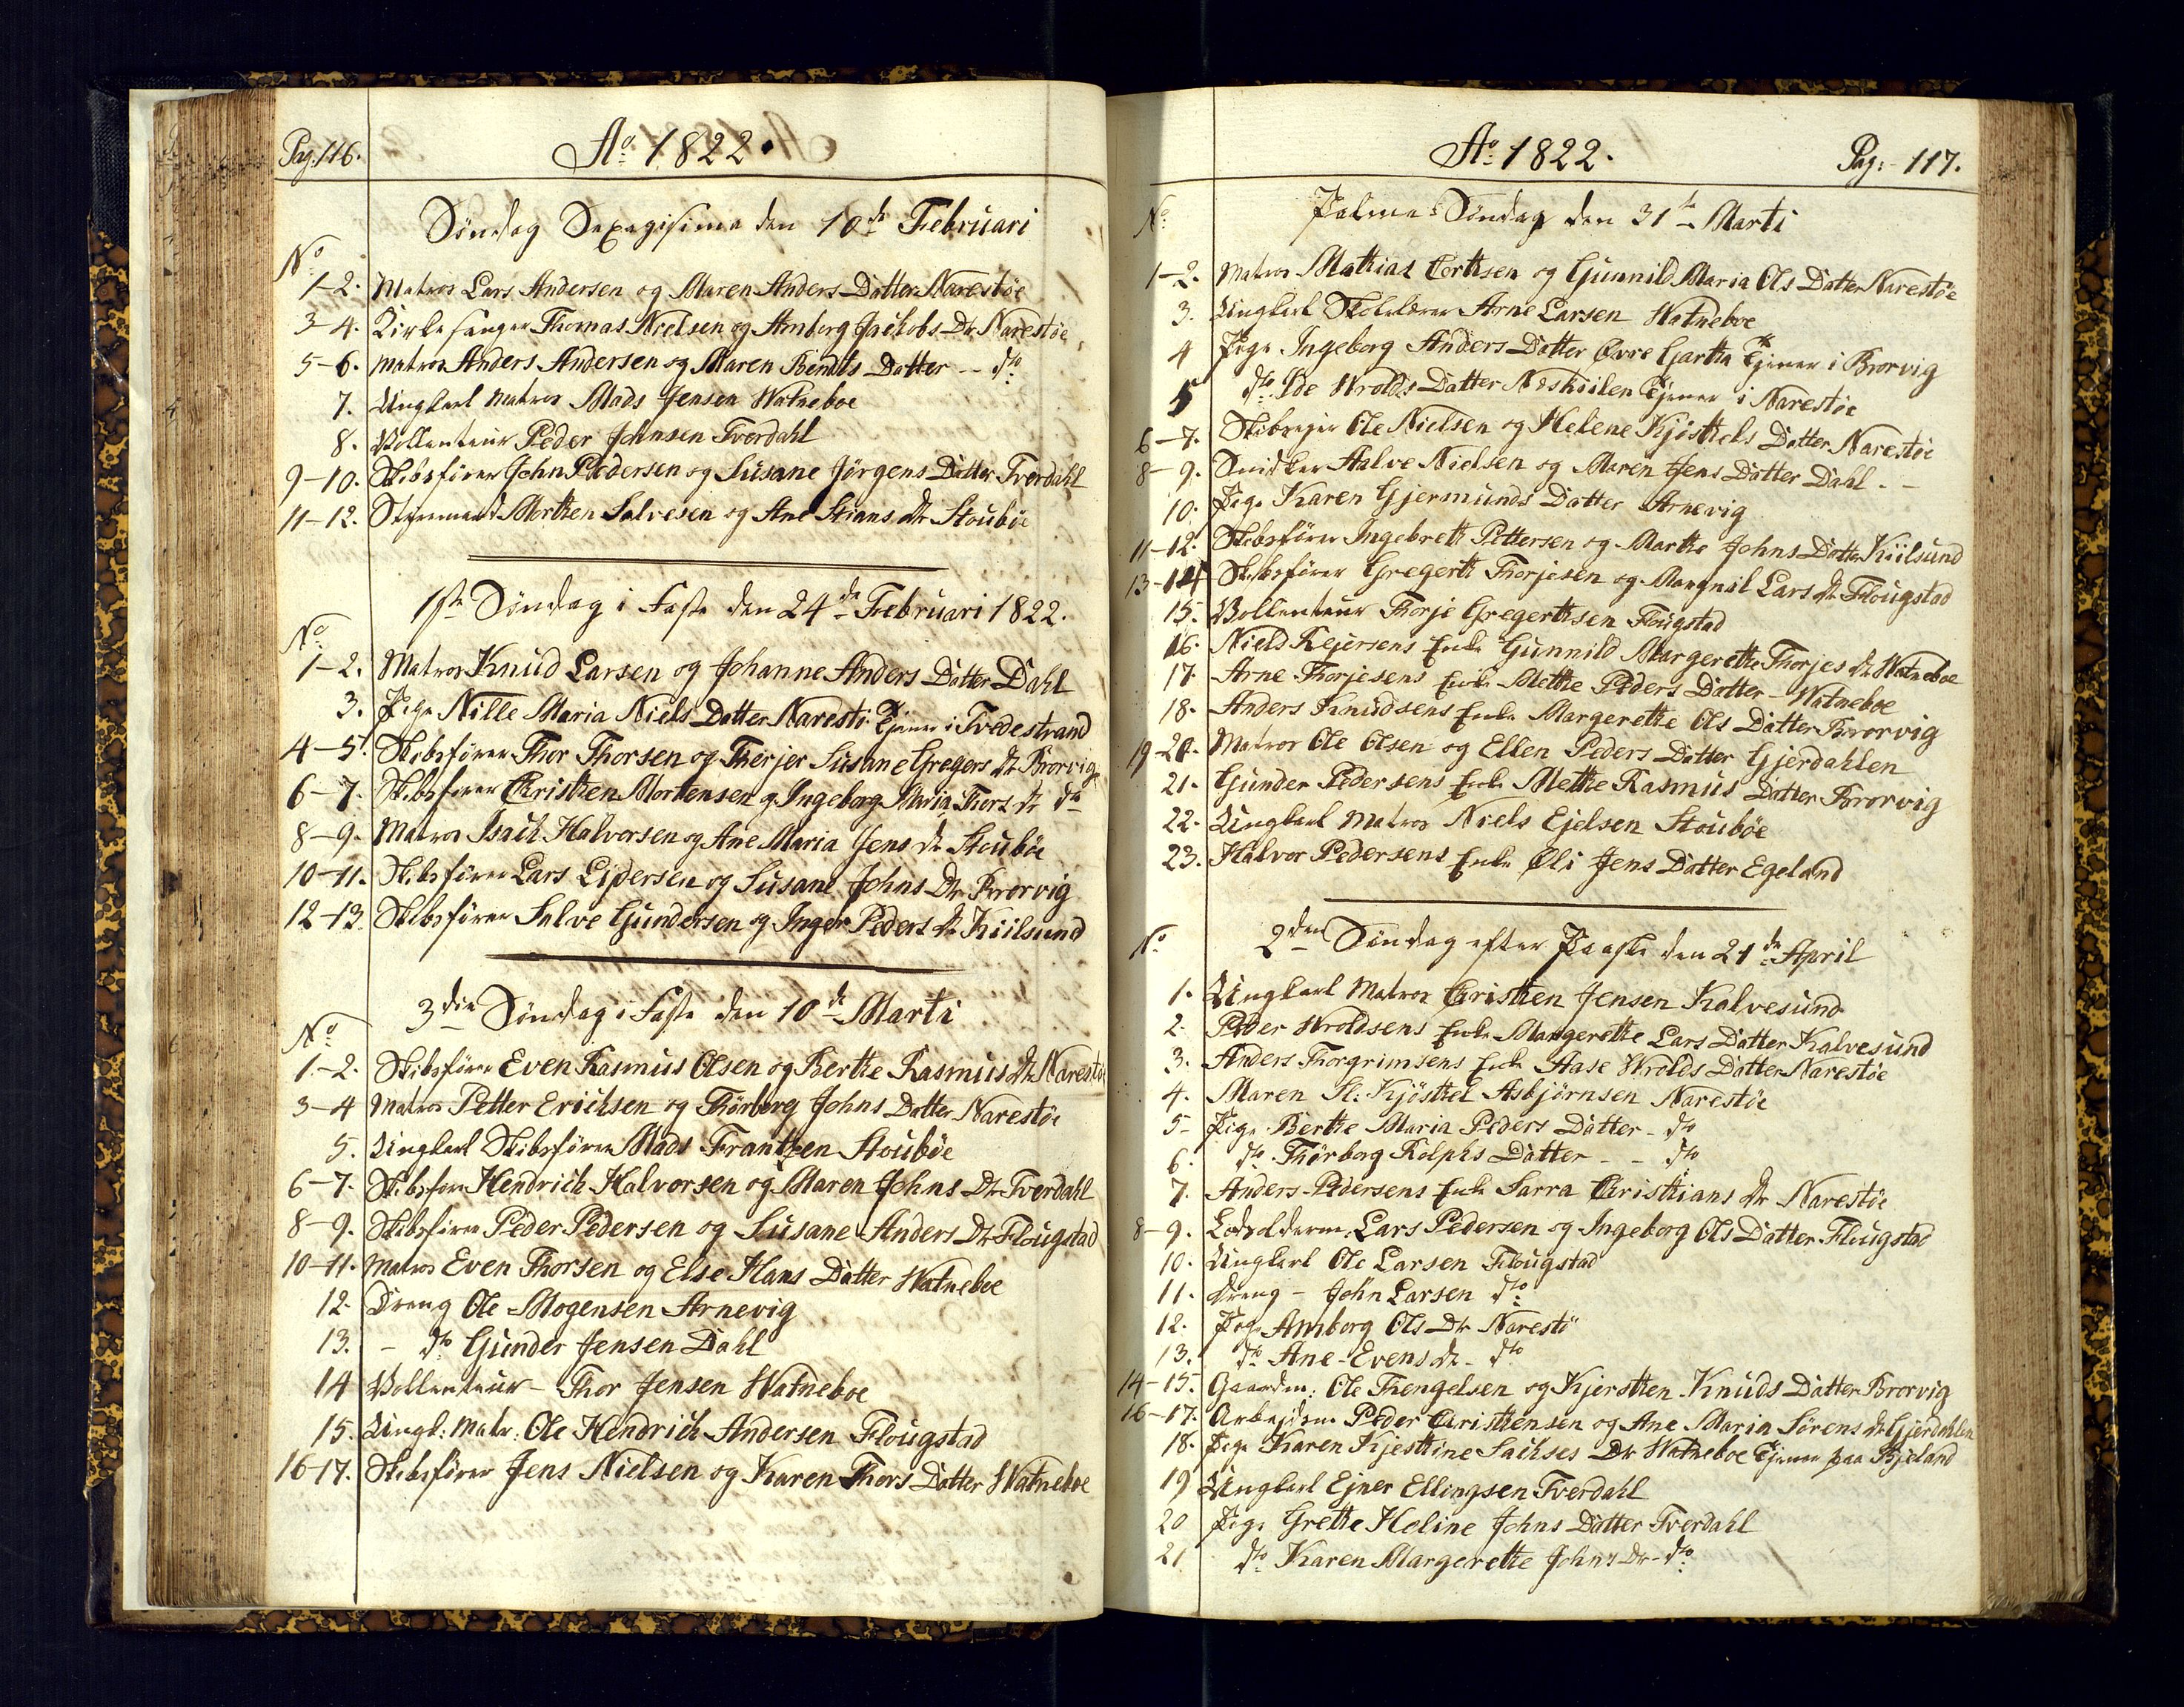 Pag: 116.
Ao 1822.
Søndag Sexagisima den 10de Februari
No
1-2. Matros Lars Andersen og Maren Anders Datter Narestøe
3-4. Kirkesanger Thomas Nielsen og Amborg Jachobs Dtr Narestøe
5-6. Matros Anders Andersen og Maren Bendts Datter -- dto
7. Ungkarl Matros Mads Jensen Watneboe
8. Vollenteur Peder Johnsen Tverdahl
9-10. Skibsfører John Pedersen og Susane Jørgens Datter Tverdahl
11-12. Styrmand Morthen Salvesen og Ane Stians Dtr Stoubøe
1ste Søndag i Faste den 24de Februari 1822.
No
1-2. Matros Knud Larsen og Johanne Anders Datter Dahl
3. Pige Nille Maria Niels Datter Narestø Tjener i Tvedestrand
4-5. Skibsfører Thor Thorsen og Therjer Susane Gregers Dtr Brorvig
6-7. Skibsfører Christhen Mortensen og Ingeborg Maria Thors Dtr dto
8-9. Matros Isach Halvorsen og Ane Maria Jens Dtr Stoubøe
10-11. Skibsfører Lars Lydersen og Susane Johns Dtr Brorvig
12-13. Skibsfører Salve Gundersen og Inger Peders Dtr Kiilsund
3die Søndag i Faste den 10de Marti
No
1-2. Skibsfører Even Rasmus Olsen og Berthe Rasmus Dtr Narestøe
3-4 Matros Petter Erichsen og Thorberg Johns Datter Narestøe
5. Ungkarl Skibsfører Mads Frantzen Stoubøe
6-7. Skibsfører Hendrich Halvorsen og Maren Johns Dtr Tverdahl
8-9. Skibsfører Peder Pedersen og Susane Anders Dtr Flougstad
10-11. Matros Even Thorsen og Else Hans Datter Watneboe
12. Dreng Ole Mogensen Arnevig
13. - dto Gunder Jensen Dahl
14 Vollenteur - Thor Jensen Watneboe
15. Ungk: Matr: Ole Hendrich Andersen Flougstad
16-17. Skibsfører Jens Nielsen og Karen Thors Datter Watneboe
Ao 1822.
Pag: 117.
No
Palme Søndag den 31te Marti
1-2. Matros Mathias Berthsen og Gunnild Maria Ols Datter Narestøe
3. Ungkarl Skolelærer Arne Larsen Watneboe
4 Pige Ingeborg Anders Datter Øvre Gartha Tjener i Brorvig
5 dto Ide Wrolds Datter Neskiilen Tjener i Narestøe
6-7. Skibsejer Ole Nielsen og Helene Kjøsthels Datter Narestøe
8-9. Snidker Halve Nielsen og Maren Jens Datter Dahl
10. Pige Karen Gjermunds Datter Arnevig
11-12. Skibsfører Ingebreth Pettersen og Marthe Johns Datter Kiilsund
13-14 Skibsfører Gregerth Thorjesen og Magnil Lars Dtr Flougstad
15. Vollenteur Thorje Gregerthsen Flougstad
16. Niels Rejersens Enke Gunnild Margerethe Thorjes Dtr Watneboe
17. Arne Thorjesens Enke Methe Peders Datter - Watneboe
18. Anders Knudsens Enke Margerethe Ols Datter Brorvig
19-20. Matros Ole Olsen og Ellen Peders Datter Gjerdahlen
21. Gunder Pedersens Enke Methe Rasmus Datter Brorvig
22. Ungkarl Matros Niels Ejelsen Stoubøe
23. Halvor Pedersens Enke Oli Jens Datter Egeland
No
2den Søndag efter Paaske den 21de April
1. Ungkarl Matros Christhen Jensen Kalvesund
2. Peder Wroldsens Enke Margerethe Lars Datter Kalvesund
3. Anders Thorgrimsens Enke Aase Wrolds Datter Narestøe
4. Maren Sl: Kjøsthel Asbjørnsen Narestøe
5- Pige Berthe Maria Peders Datter - dto
6. dto Thorborg Rolphs Datter - - dto
7. Anders Pedersens Enke Sarra Christhians Dtr Narestøe
8-9. Lodsolderm. Lars Pedersen og Ingeborg Ols Datter Flougstad
10. Ungkarl Ole Larsen Flougstad
11. Dreng - John Larsen dto
12. Pige Amborg Ols Dtr Narestø
13. dto Ane Evens Dtr - dto
14-15. Gaardm: Ole Thengelsen og Kjersthen Knuds Datter Brorvig
16-17. Arbejdsm. Peder Christhensen og Ane Maria Sørens Dtr Gjerdahlen
18. Pige Karen Kjesthine Sachses Dtr Watneboe Tjener paa Bjeland
19 Ungkarl Ejner Ellingsen Tverdahl
20 Pige Grethe Heline Johns Datter Tverdahl
21 dto Karen Margerethe Johns Dtr - dto